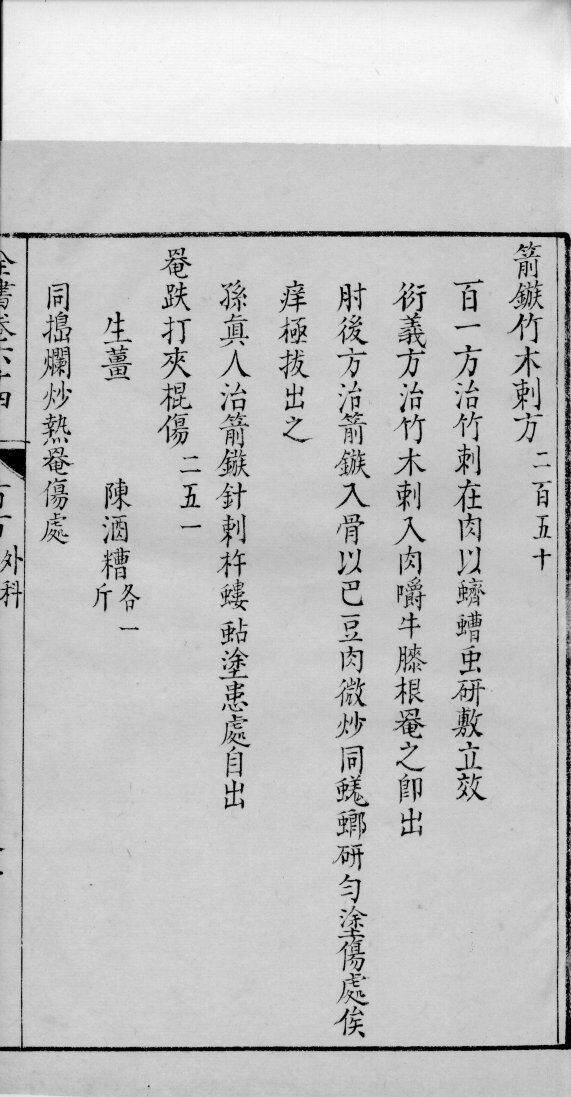 箭鏃竹木刺方 二百五十
百一方治竹刺在肉以蠐螬䖝研敷立效
衍義方治竹木刺入肉嚼牛膝根罨之即出
肘後方治箭鏃入骨以巴豆肉微炒同蜣螂研勻塗傷處俟
痒極拔出之
孫眞人治箭鏃針刺杵螻蛄塗患處自出
罨跌打夾棍傷 二五一
生薑 陳酒糟各一斤
同搗爛炒熱罨傷處
全書卷六十四 外科